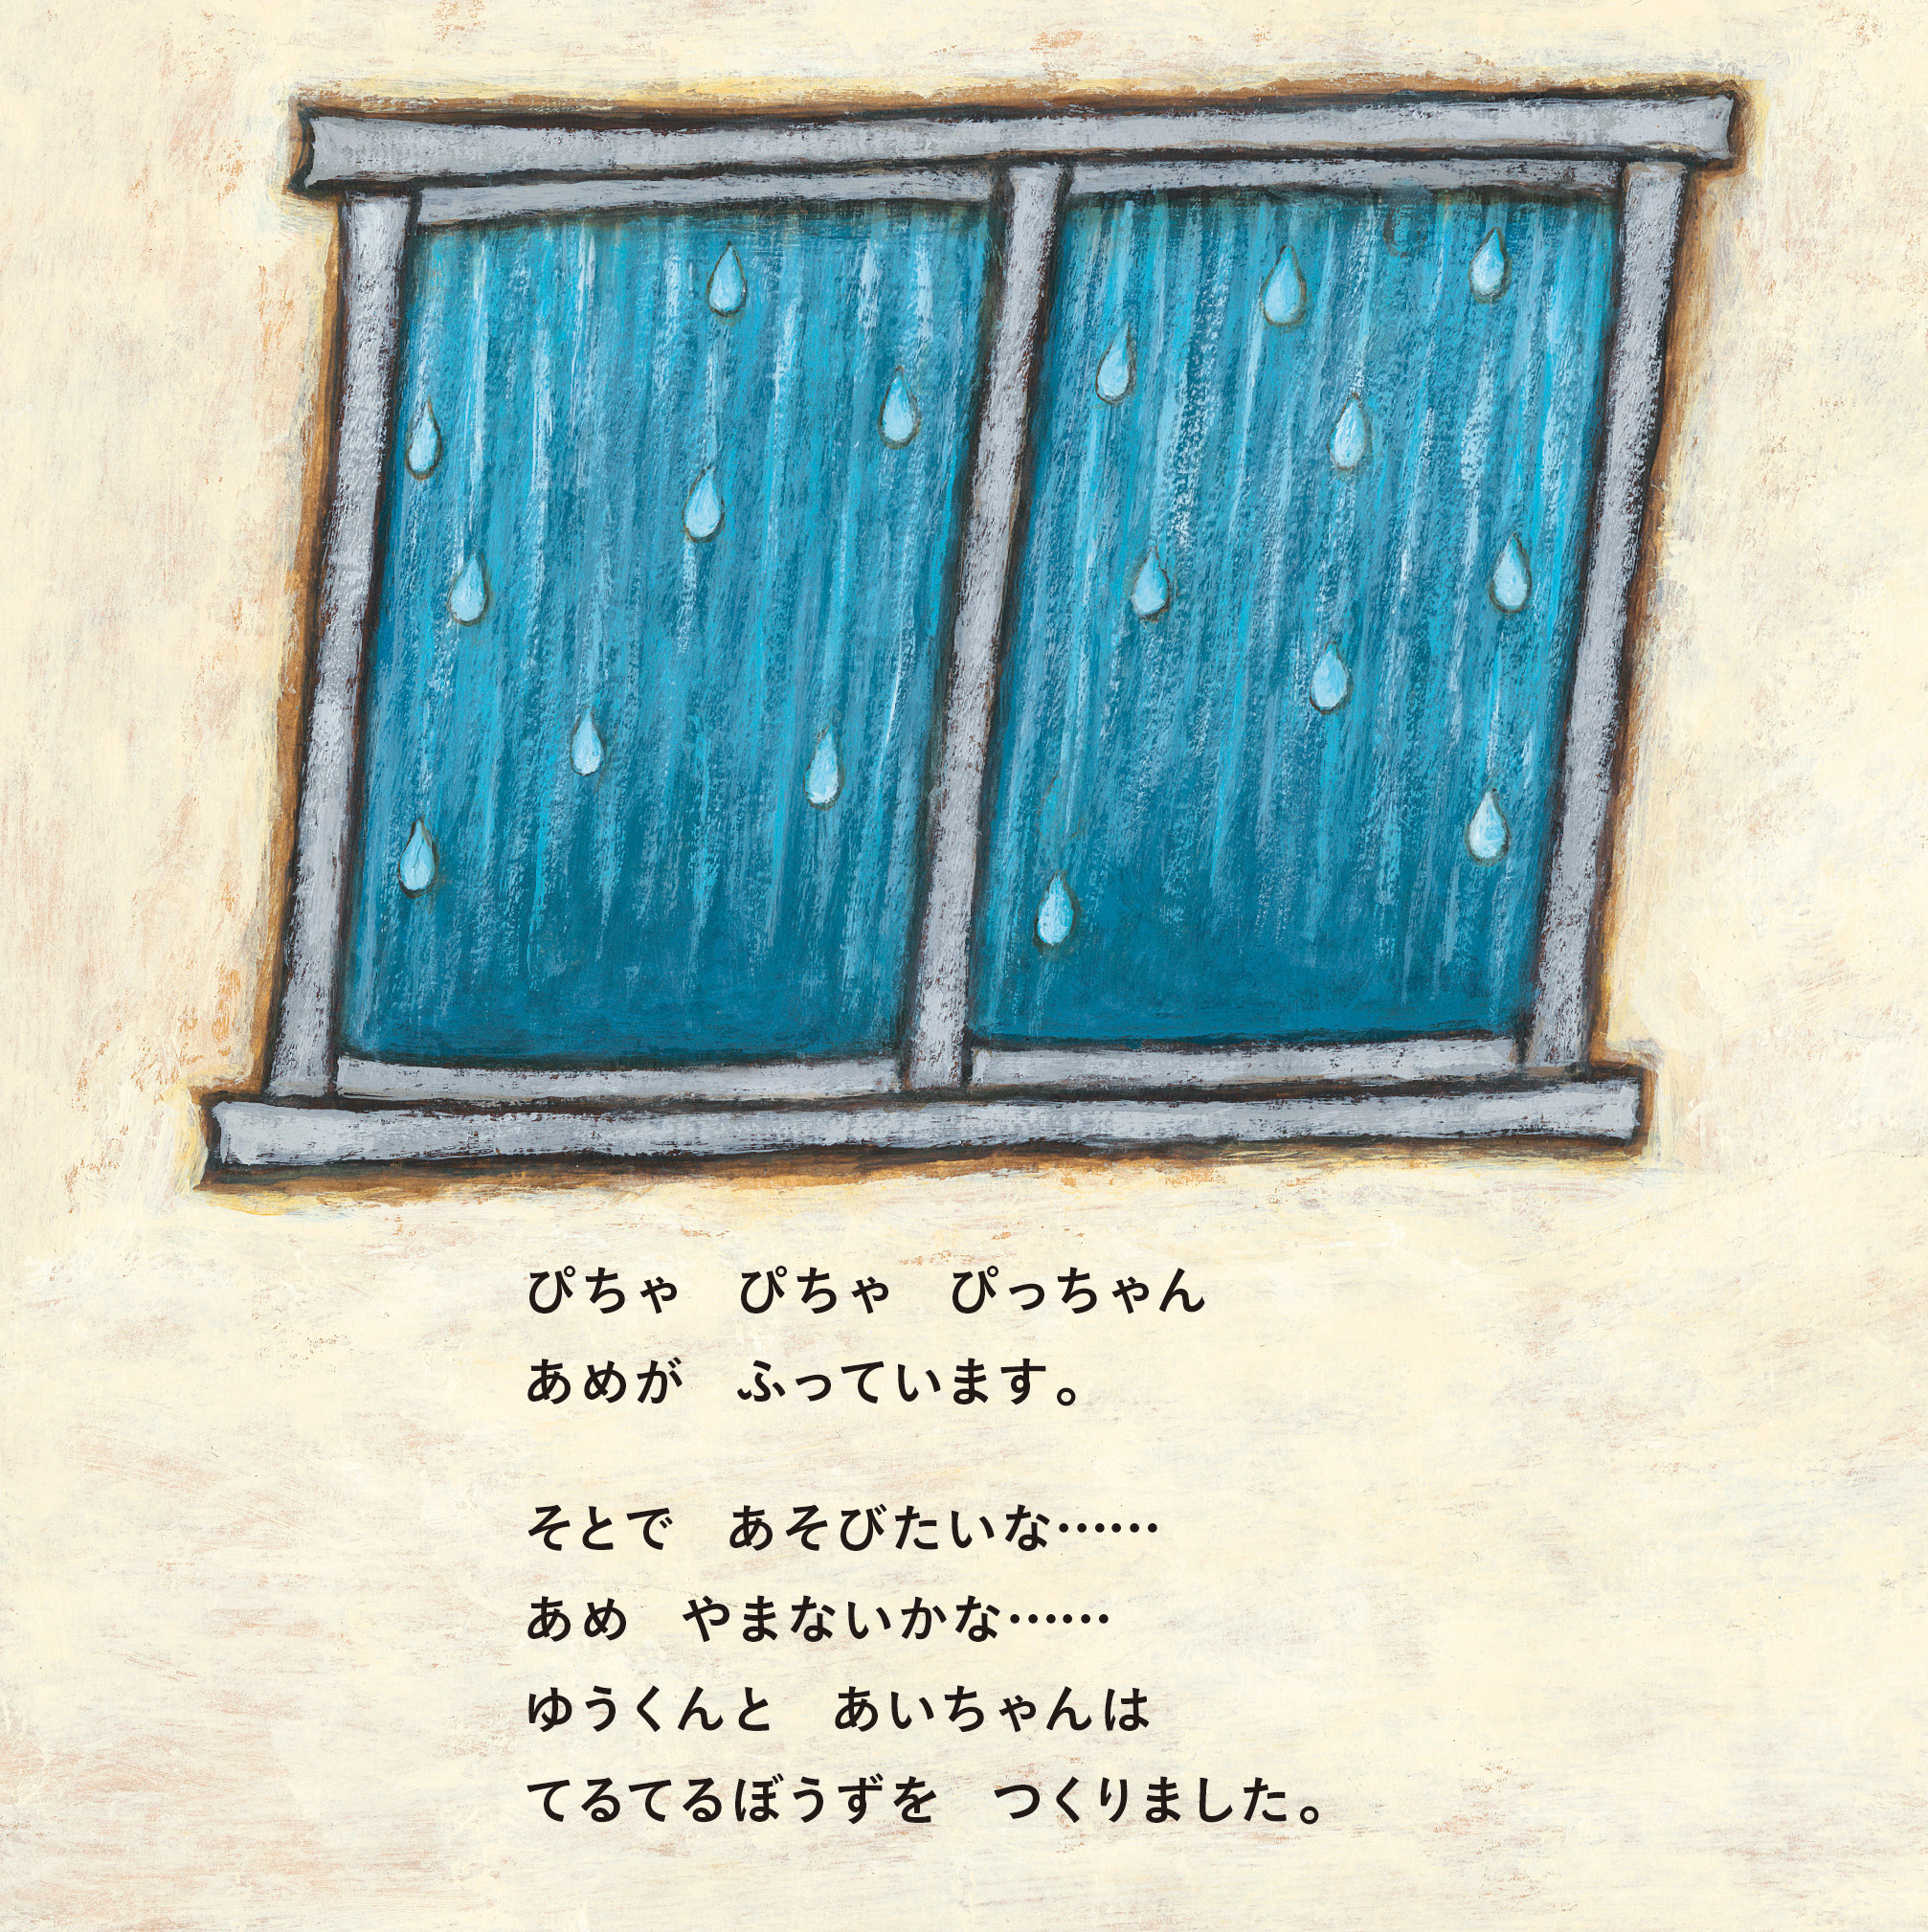 ぴちゃ　ぴちゃ　ぴっちゃん
あめが　ふっています。
そとで　あそびたいな……
あめ　やまないかな……
ゆうくんと　あいちゃんは
てるてるぼうずを　つくりました。